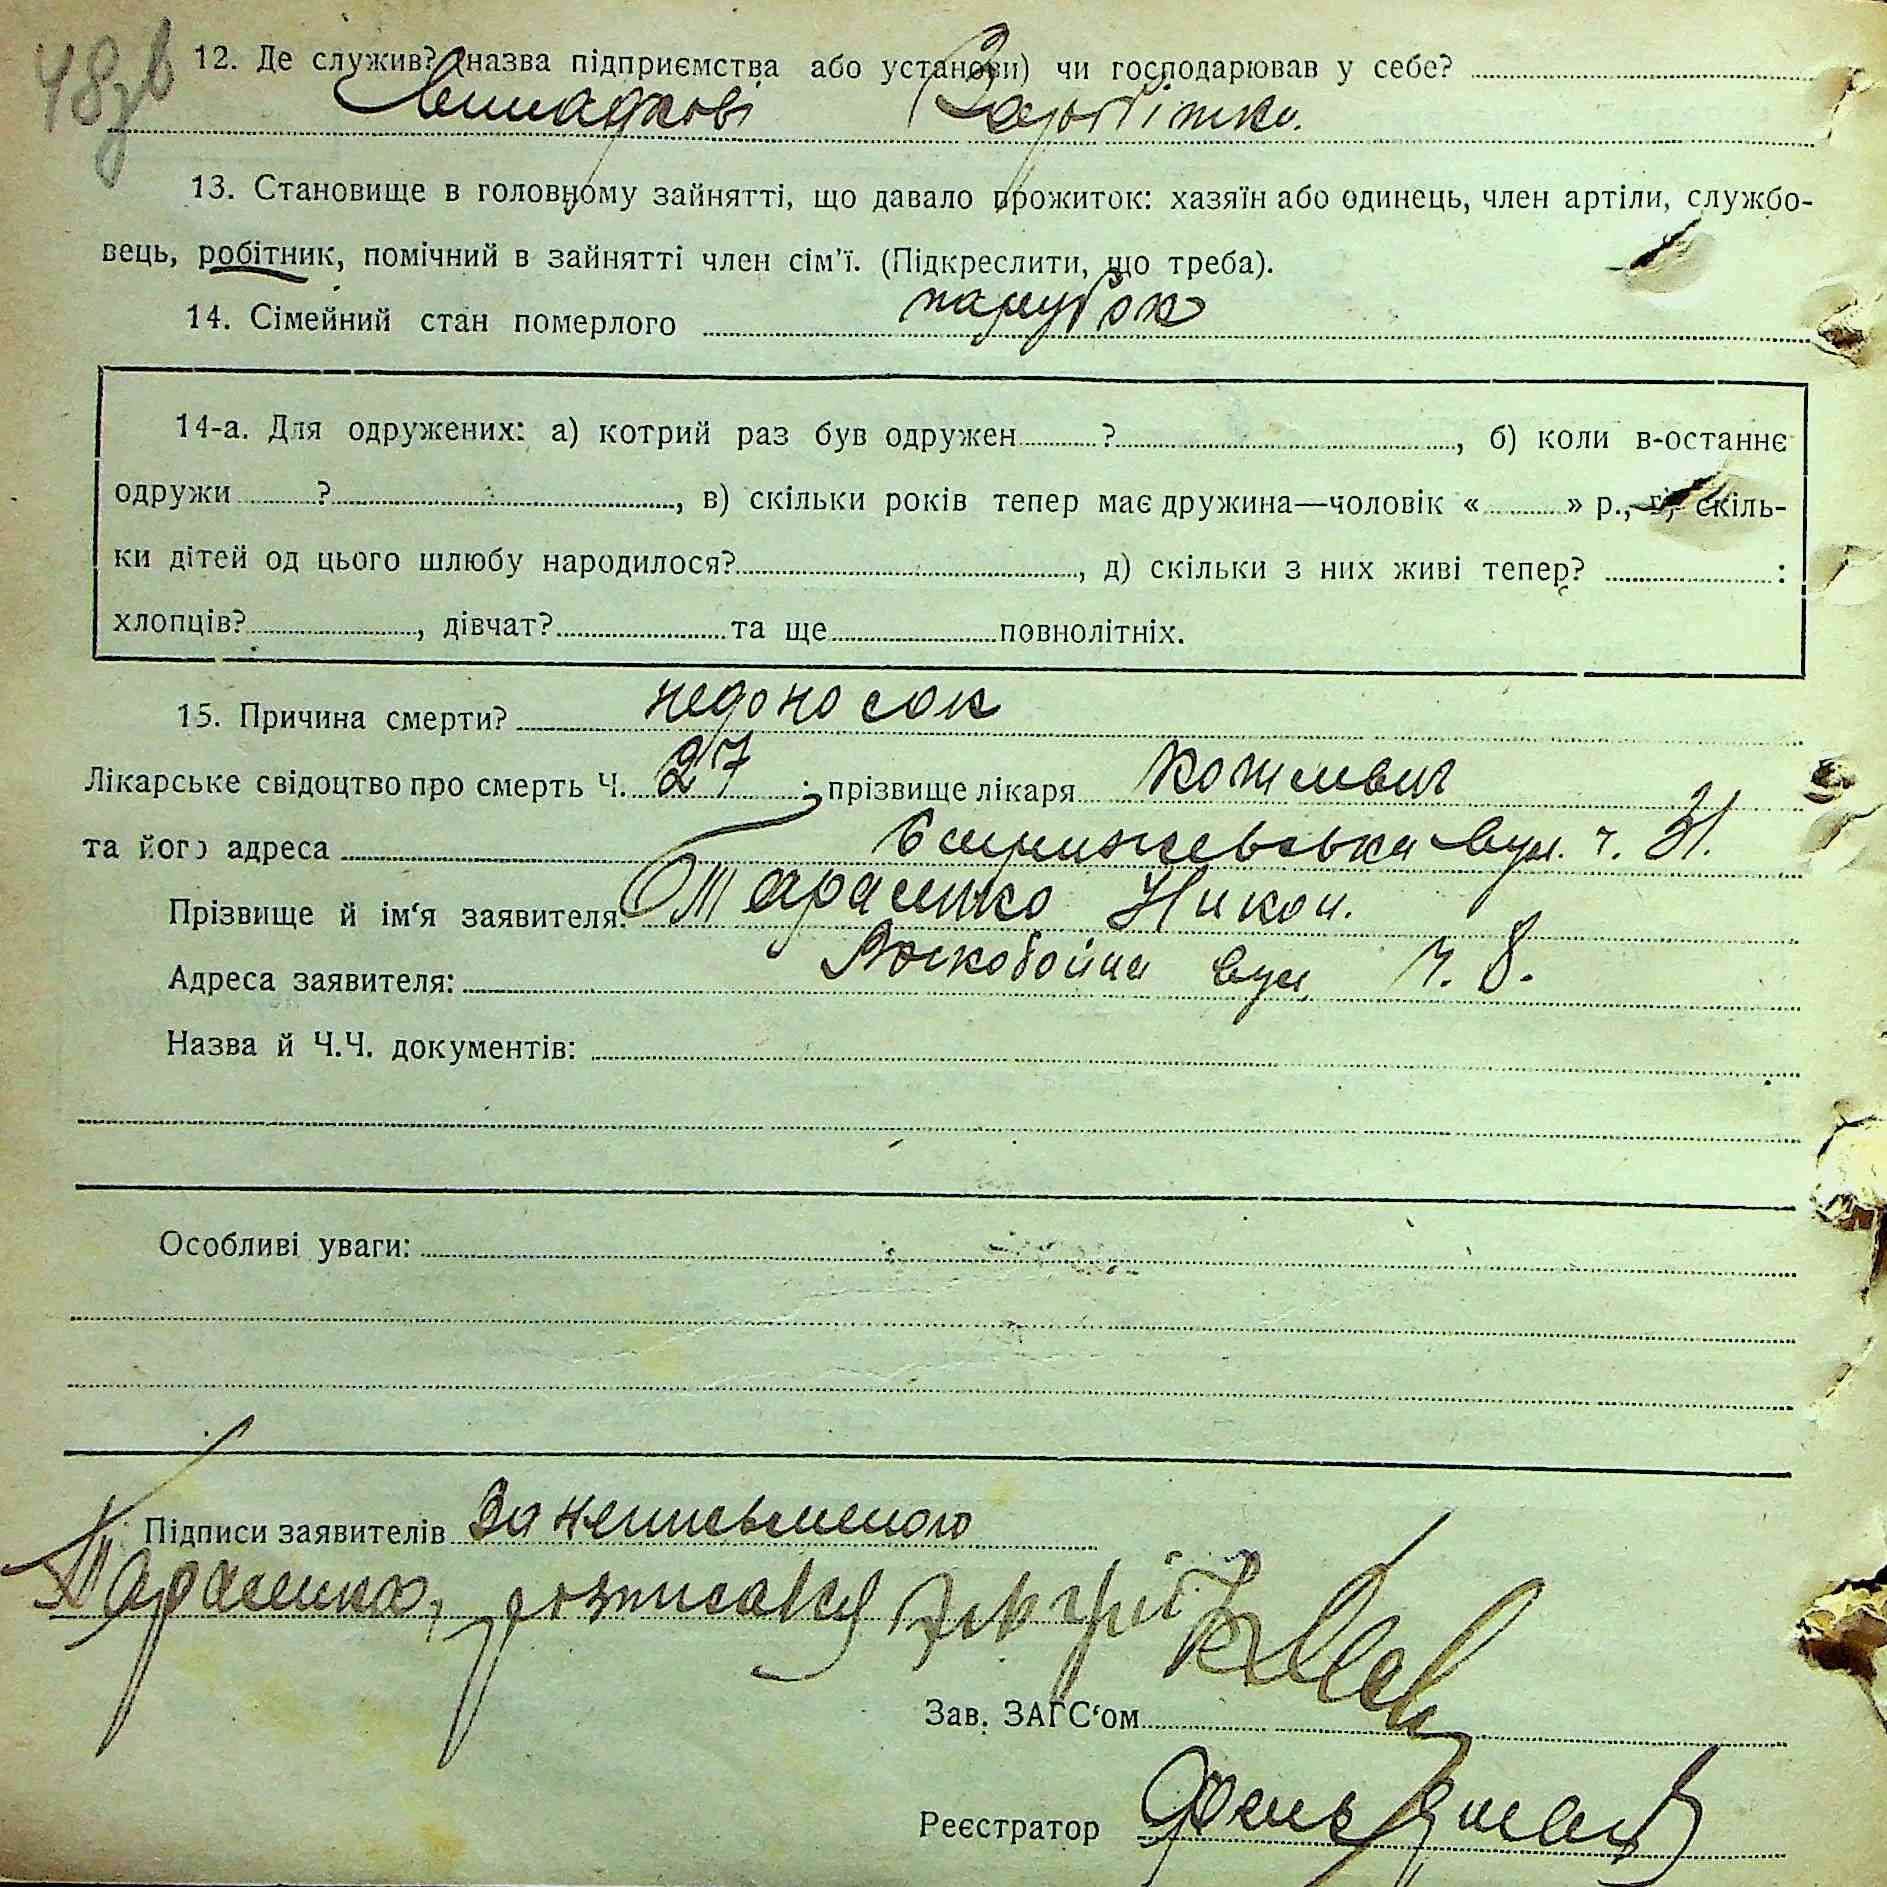 48зв
12. Де служив? (назва підприємства або установи) чи господарював у себе?
Випадкові Заробітки.
13. Становище в головному зайнятті, що давало прожиток: хазяїн або одинець, член артіли, службо-
вець, робітник, помічний в зайнятті член сім'ї. (Підкреслити, що треба).
14. Сімейний стан померлого парубок
14-а. Для одружених: а) котрий раз був одружен ? , б) коли в-останнє
одружи ? , в) скільки років тепер має дружина—чоловік « » р., г) скіль-
ки дітей од цього шлюбу народилося? , д) скільки з них живі тепер? :
хлопців? , дівчат? та ще повнолітніх.
15. Причина смерти? недоносок
Лікарське свідоцтво про смерть Ч. 27 ; прізвище лікаря
та його адреса вул. ч. 31.
Прізвище й ім'я заявителя: Тарасенко Никон.
Адреса заявителя: Воскобойна вул ч. 8.
Назва й Ч.Ч. документів:
Особливі уваги:
Підписи заявителів За неписьменого
Тарасенко, розписався
Зав. ЗАГС'ом
Реєстратор